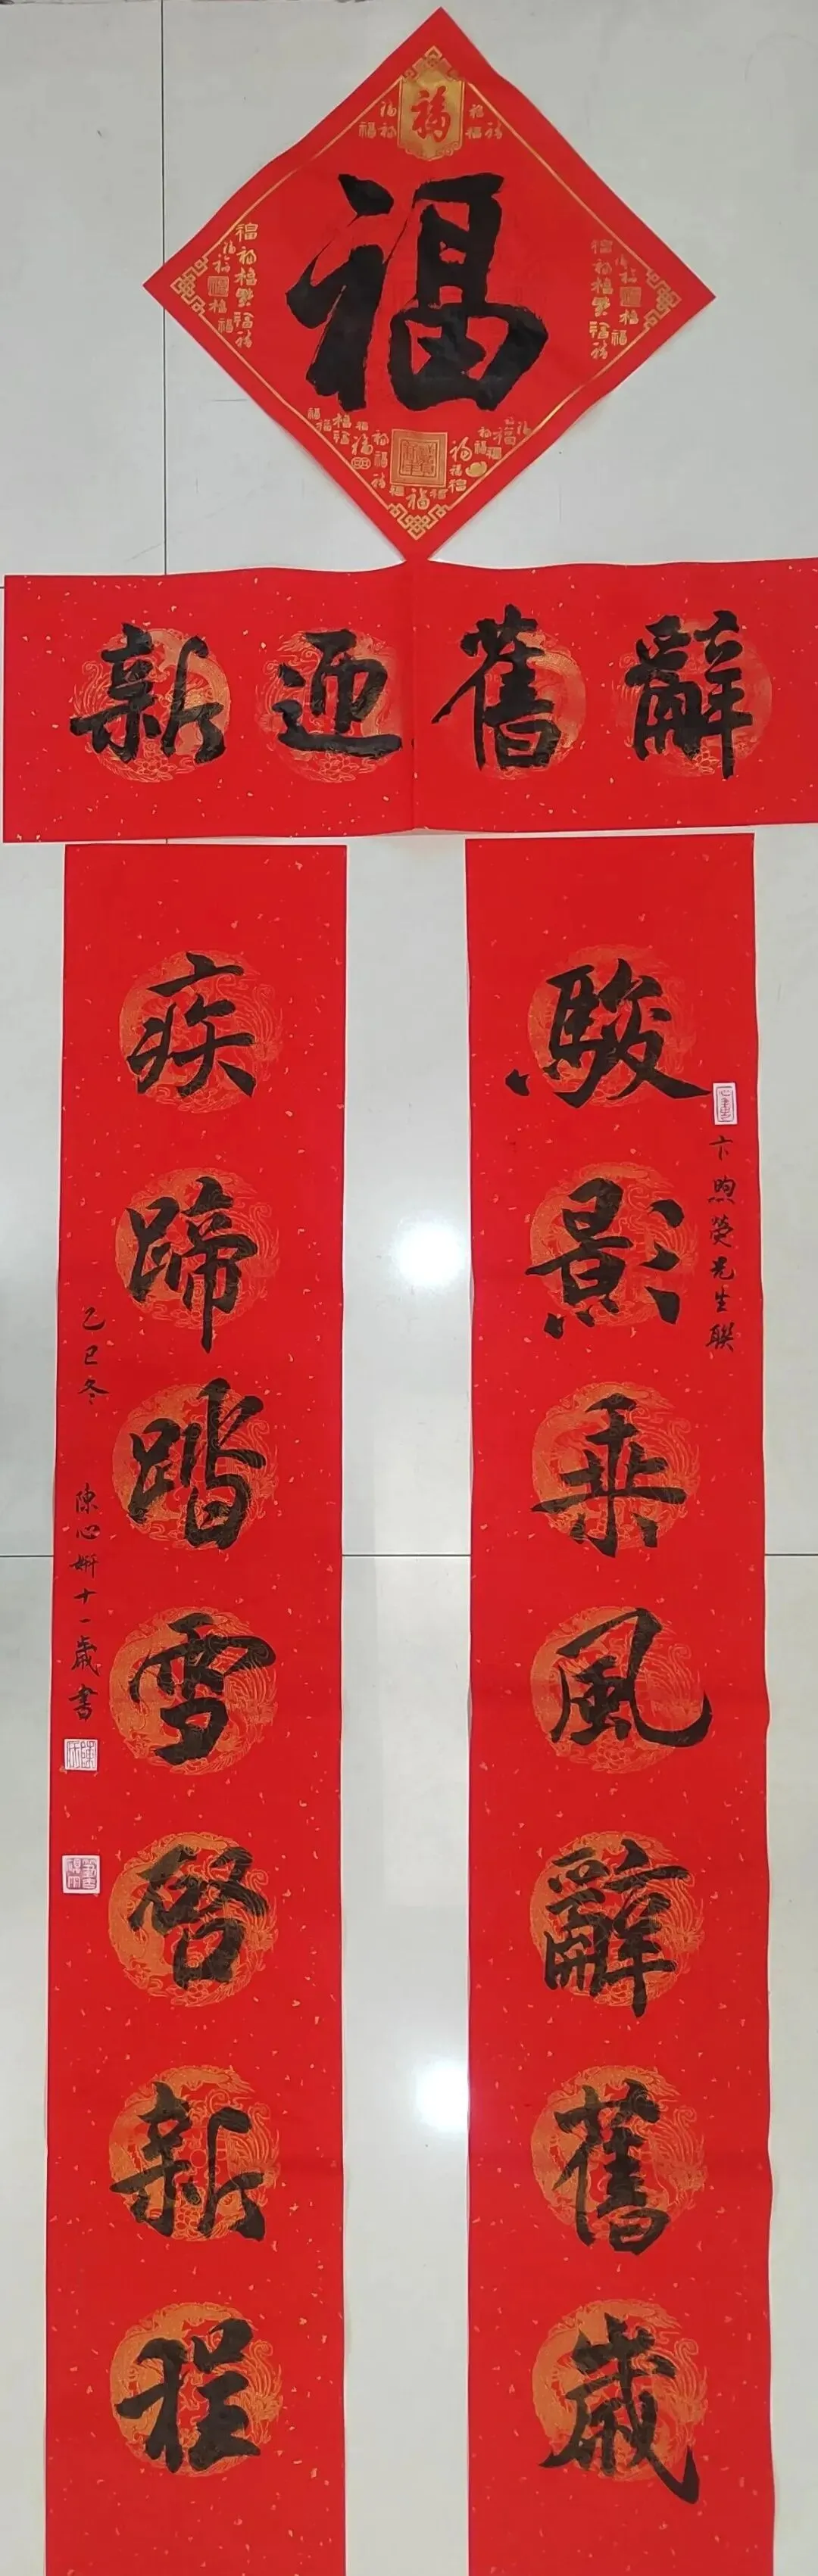 福
辭舊迎新
駿影乘風辭舊歲
卞煦熒先生聯
疾蹄踏雪啓新程
乙巳冬 陳心妍十一歲書